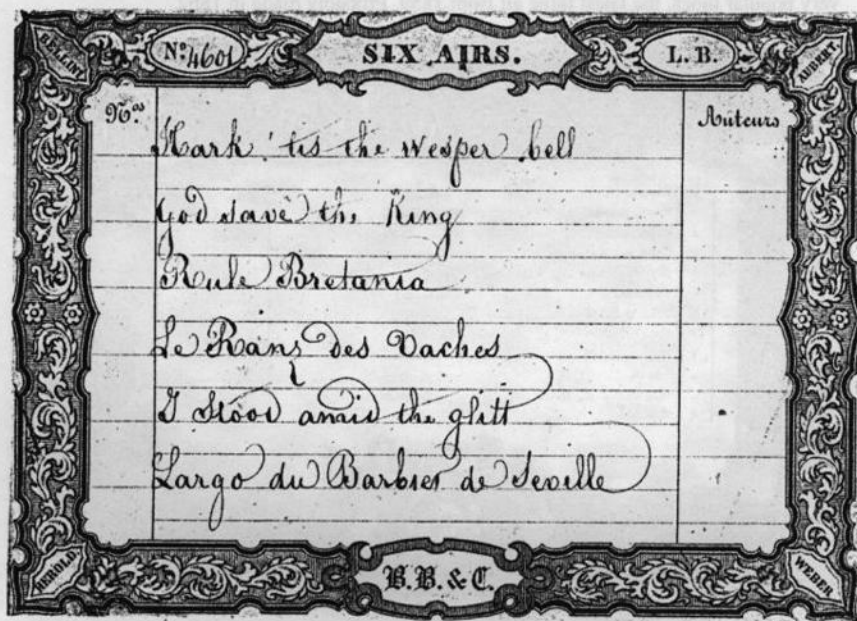 BELLINI N° 4601 SIX AIRS. L. B. AUBERT.
Nos. Auteurs
Hark! 'tis the wesper bell
God save the King
Rule Bretania
Le Rans des Vaches
I Stood amid the glitt
Largo du Barbier de Seville
HEROLD. B.B. & C. WEBER